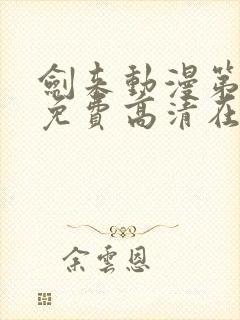 劍來動漫第
免費高清在
余雲恩